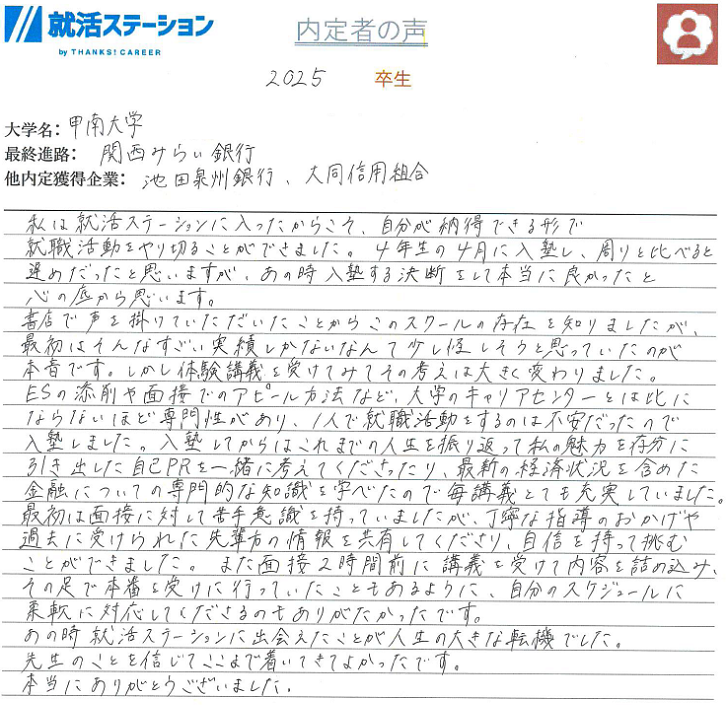 就活ステーション
by THANKS! CAREER
内定者の声
2025 卒生
大学名: 甲南大学
最終進路: 関西みらい銀行
他内定獲得企業: 池田泉州銀行、大同信用組合
私は就活ステーションに入ったからこそ、自分が納得できる形で
就職活動をやり切ることができました。4年生の4月に入塾し、周りと比べると
遅めだったと思いますが、あの時入塾する決断をして本当に良かったと
心の底から思います。
書店で声を掛けていただいたことからこのスクールの存在を知りましたが、
最初はそんなすごい実績しかないなんて少し怪しそうと思っていたのが
本音です。しかし体験講義を受けてみてその考えは大きく変わりました。
ESの添削や面接でのアピール方法など、大学のキャリアセンターとは比に
ならないほど専門性があり、1人で就職活動をするのは不安だったので
入塾しました。入塾してからはこれまでの人生を振り返って私の魅力を存分に
引き出した自己PRを一緒に考えてくださったり、最新の経済状況を含めた
金融についての専門的な知識を学べたので毎講義とても充実していました。
最初は面接に対して苦手意識を持っていましたが、丁寧な指導のおかげや
過去に受けられた先輩方の情報を共有してくださり、自信を持って挑む
ことができました。また面接2時間前に講義を受けて内容を詰め込み、
その足で本番を受けに行っていたこともあるように、自分のスケジュールに
柔軟に対応してくださるのもありがたかったです。
あの時就活ステーションに出会えたことが人生の大きな転機でした。
先生のことを信じてここまで着いてきてよかったです。
本当にありがとうございました。